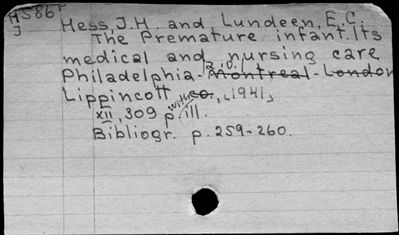 H586P Hess, J.H. and Lundeen, E.C.
J The Premature infant. Its
medical and nursing care
2.0.
Philadelphia - Montreal - London
Lippincott, co., 1941,
with
XII, 309 p. ill.
Bibliogr. p. 259-260.